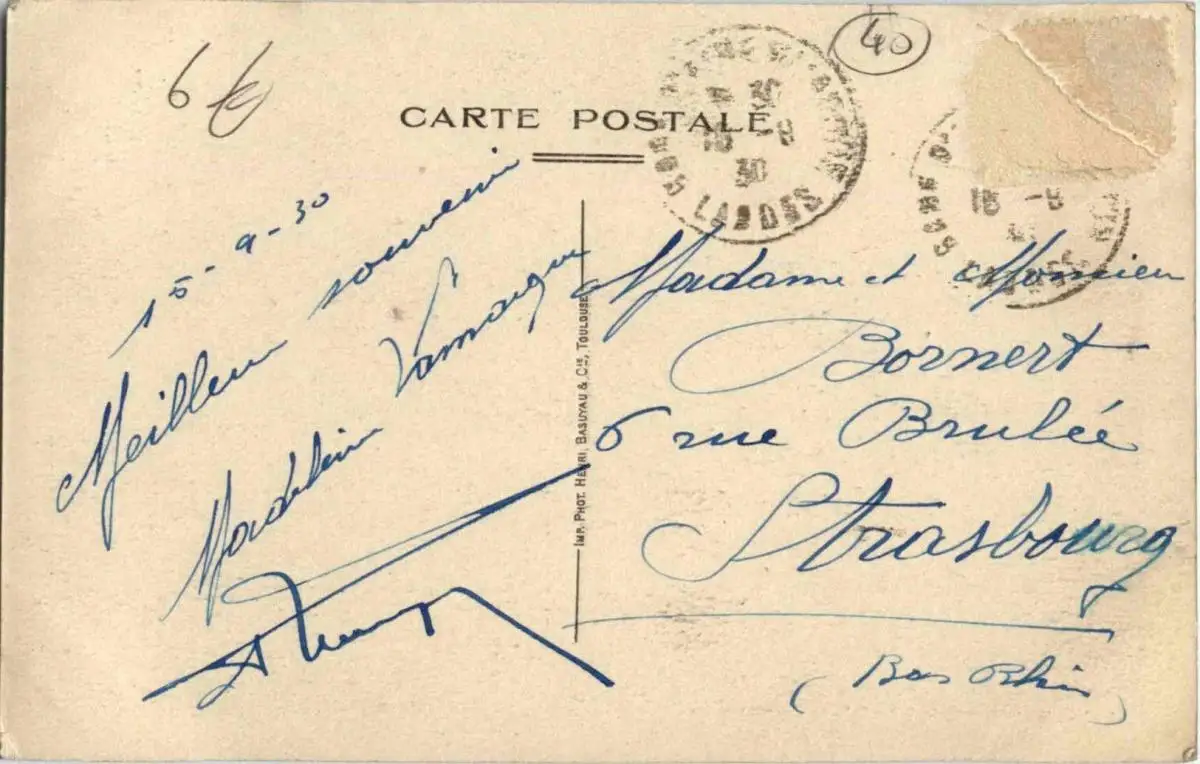 6 €
40
CARTE POSTALE
LANDES
15-9-30
Meilleur souvenir
Madeleine
IMP. PHOT. HENRI BASUYAU & Cie, TOULOUSE
Madame et Monsieur
Bornert
6 rue Brulée
Strasbourg
(Bas Rhin)